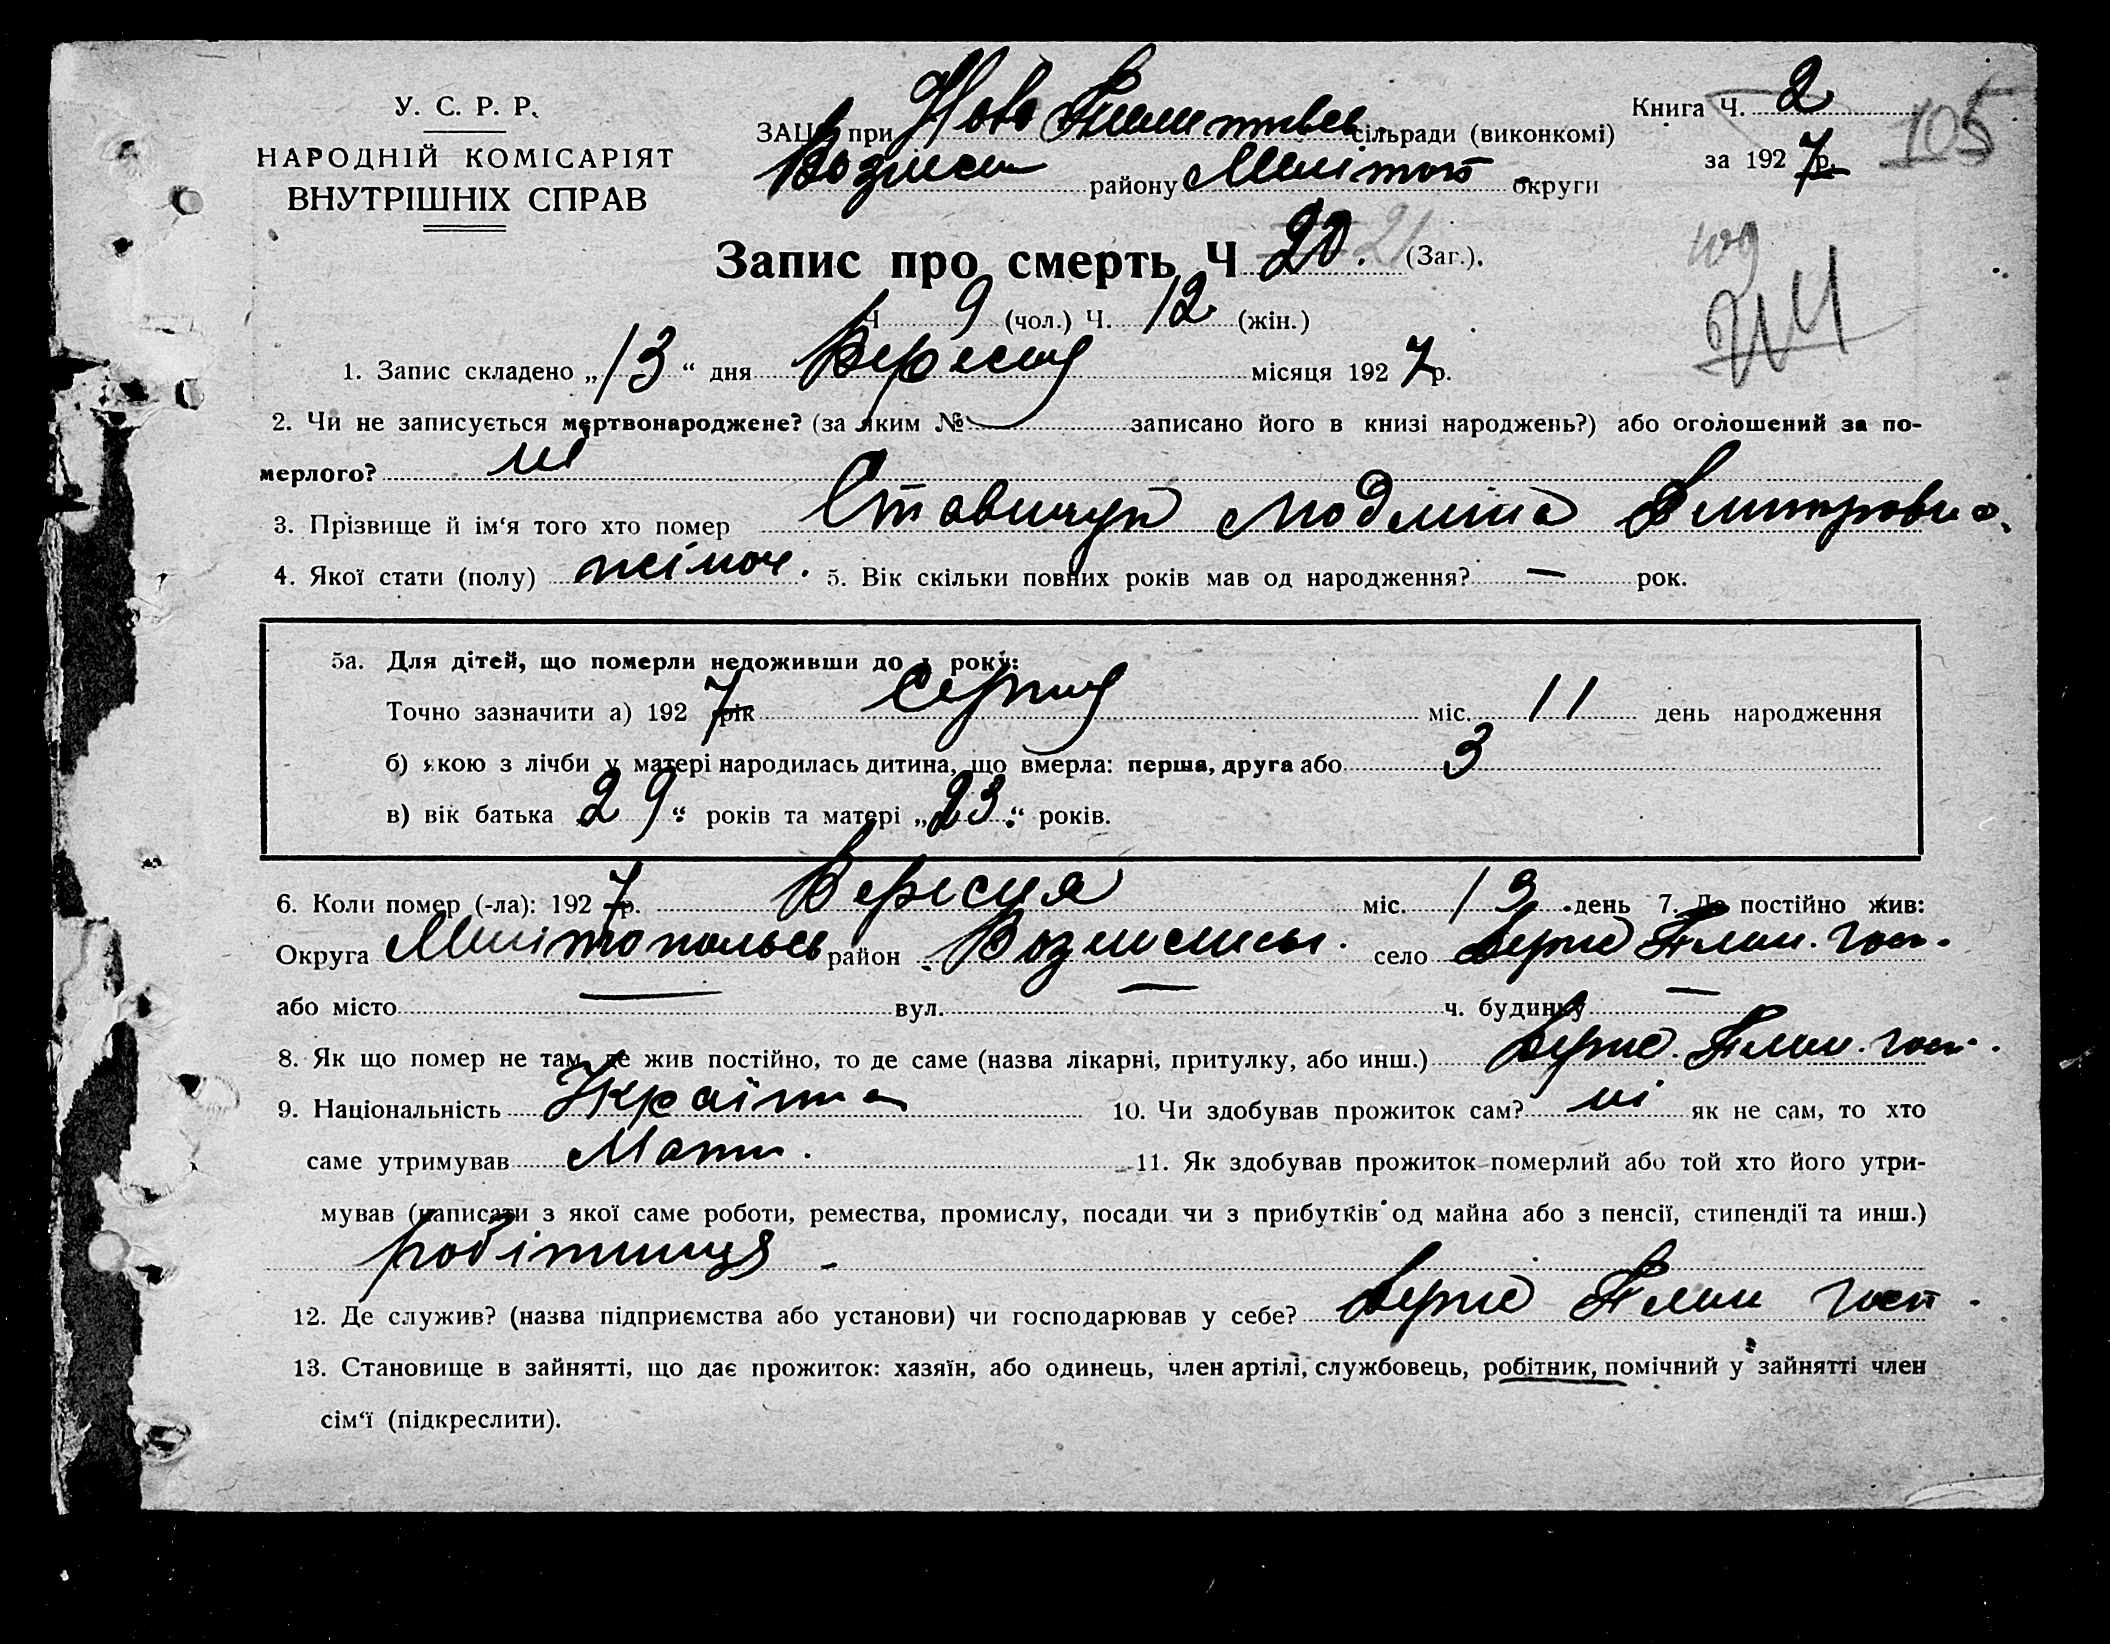 У. С. Р. Р.
НАРОДНІЙ КОМІСАРІЯТ
ВНУТРІШНІХ СПРАВ
ЗАЦС при Ново сільради (виконкомі)
района Меліто округи
Книга Ч. 2
за 1927 р.
105
Запис про смерть Ч 20. 21 (Заг.).
109
Ч 9 (чол.) Ч. 12 (жін.)
1. Запис складено „13“ дня Вересня місяця 1927 р.
2. Чи не записується мертвонароджене? (за яким № записано його в книзі народжень?) або оголошений за по-
мерлого? ні
3. Прізвище й ім‘я того хто помер Людміла Дмитровна.
4. Якої стати (полу) жіноч. 5. Вік скільки повних років мав од народження? — рок.
5а. Для дітей, що померли недоживши до 1 року:
Точно зазначити а) 1927 рік Серпня міс. 11 день народження
б) якою з лічби у матері народилась дитина, що вмерла: перша, друга або 3
в) вік батька 29“ років та матері „23“ років.
6. Коли помер (-ла): 1927 р. Вересня міс. 13 день 7. Де постійно жив:
Округа Мелітопольсь район село Держ Плем. Госп.
або місто — вул. — ч. будинку —
8. Як що помер не там, де жив постійно, то де саме (назва лікарні, притулку, або инш.) Держ. Плем. Госп.
9. Національність Україн 10. Чи здобував прожиток сам? ні як не сам, то хто
саме утримував Мати. 11. Як здобував прожиток померлий або той хто його утри-
мував (написати з якої саме роботи, ремества, промислу, посади чи з прибутків од майна або з пенсії, стипендії та инш.)
робітниця -
12. Де служив? (назва підприємства або установи) чи господарював у себе? Держ Плем Госп.
13. Становище в зайнятті, що дає прожиток: хазяїн, або одинець, член артілі, службовець, робітник, помічний у зайнятті член
сім‘ї (підкреслити).